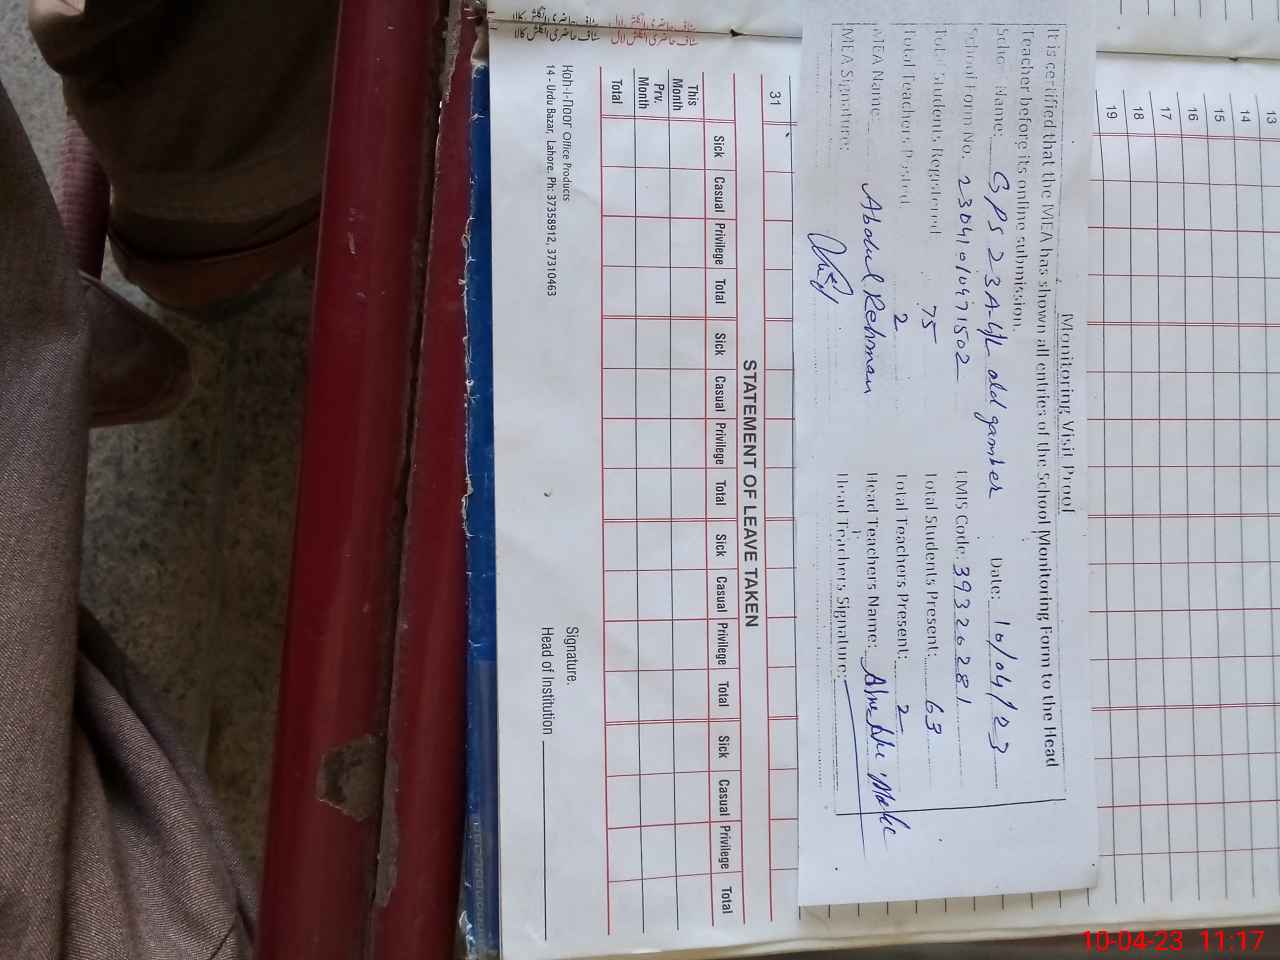 سٹاف حاضری انگلش لال
سٹاف حاضری انگلش کالا
13
14
15
16
17
18
19
Monitoring Visit Proof
It is certified that the MEA has shown all entries of the School Monitoring Form to the Head
Teacher before its online submission.
School Name: GPS 23A-4/L old gamber Date: 10/04/23
School Form No. 2304101047 1502 EMIS Code: 39320281
Total Students Registered: 75 Total Students Present: 63
Total Teachers Posted: 2 Total Teachers Present: 2
MEA Name: Abdul Rehman Head Teachers Name:
MEA Signature: Head Teachers Signature:
31
STATEMENT OF LEAVE TAKEN
Sick Casual Privilege Total Sick Casual Privilege Total Sick Casual Privilege Total Sick Casual Privilege Total
This Month
Prv. Month
Total
Koh-i-Noor Office Products
14 - Urdu Bazar, Lahore. Ph: 37358912, 37310463
Signature.
Head of Institution
10-04-23 11:17